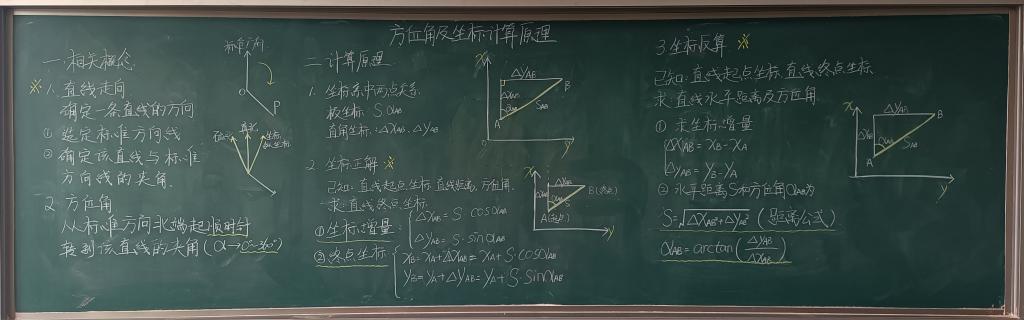 方位角及坐标计算原理
一.相关概念
※ 1. 直线走向
确定一条直线的方向
① 选定标准方向线
② 确定该直线与标准
方向线的夹角.
2. 方位角
从标准方向北端起顺时针
转到该直线的夹角(α→0°~360°)
标准方向
O
P
真北
坐标
二.计算原理
1. 坐标系中两点关系
极坐标: S αAB
直角坐标: ΔXAB、ΔYAB
x
ΔYAB
B
ΔXAB
αAB
SAB
A
O
y
2. 坐标正解 ※
已知: 直线起点坐标.直线距离.方位角.
求: 直线终点坐标.
①坐标增量:
ΔXAB = S·cosαAB
ΔYAB = S·sinαAB
②终点坐标
XB = XA+ΔXAB = XA+S·cosαAB
YB = YA+ΔYAB = YA+S·sinαAB
x
ΔYAB
B(终点)
A(起点)
y
3.坐标反算 ※
已知: 直线起点坐标.直线终点坐标
求: 直线水平距离及方位角
① 求坐标增量
ΔXAB = XB-XA
ΔYAB = YB-YA
② 水平距离S和方位角αAB为
S=√ΔXAB²+ΔYAB² (距离公式)
αAB=arctan(ΔYAB/ΔXAB)
x
ΔYAB
B
ΔXAB
αAB
SAB
A
y